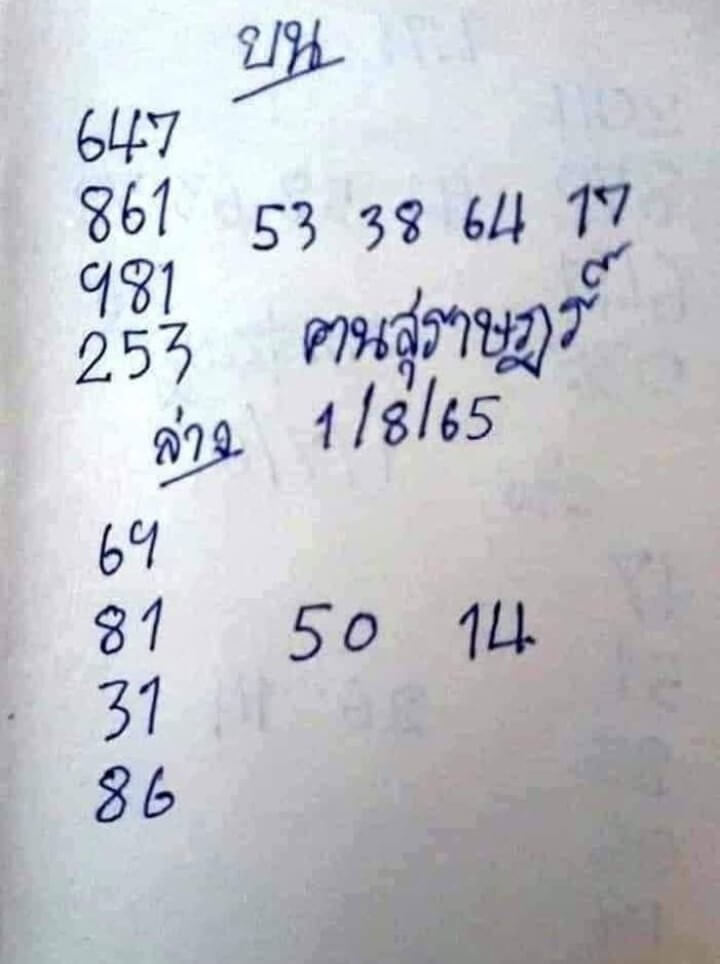 บน
647
861 53 38 64 17
981
253 คนสุราษฎร์
ล่าง 1/8/65
69
81 50 14
31
86